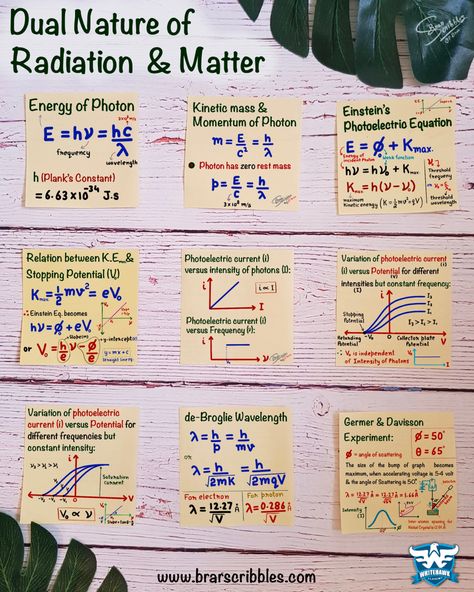 Dual Nature of
Radiation & Matter
Energy of Photon
E = hν = hc/λ
frequency
wavelength
h (Plank's Constant)
= 6.63×10⁻³⁴ J.s
Kinetic mass &
Momentum of Photon
m = E/c² = h/cλ
Photon has zero rest mass
p = E/c = h/λ
3×10⁸ m/s
Einstein's
Photoelectric Equation
E = ϕ + Kmax.
Energy of
incident Photon
Work function
hν = hν₀ + Kmax.
Kmax = h(ν-ν₀)
maximum
Kinetic energy (K=½mv²)
Threshold
frequency
threshold
wavelength
Relation between K.E. &
Stopping Potential (V₀)
Kmax = ½mv² = eV₀
∴ Einstein Eq. becomes
hν = ϕ + eV₀
or V₀ = h/e ν - ϕ/e
y-intercept
y = mx+c
straight line
Photoelectric current (i)
versus intensity of photons (I):
i
i ∝ I
I
Photoelectric current (i)
versus Frequency (ν):
i
ν
Variation of photoelectric current
(i) versus Potential (V) for different
intensities but constant frequency:
i
I₃
I₂
I₁
I₃ > I₂ > I₁
Stopping
Potential
-V₀
0
V
Retarding
Potential
Collector plate
Potential
∴ V₀ is independent
of Intensity of Photons
Variation of photoelectric
current (i) versus Potential for
different frequencies but
constant intensity:
ν₃ > ν₂ > ν₁
Saturation
current
V
V₀ ∝ ν
de-Broglie Wavelength
λ = h/p = h/mv
or
λ = h/√2mK = h/√2mqV
For electron
λ = 12.27/√V
For proton
λ = 0.286/√V
Germer & Davisson
Experiment:
ϕ = 50°
θ = 65°
ϕ = angle of scattering
The size of the bump of graph becomes
maximum, when accelerating voltage is 54 volt
& the angle of Scattering is 50°
λ = 12.27/√V = 12.27/√54 = 1.66Å
Intensity
www.brarscribbles.com
WHITEHAWK